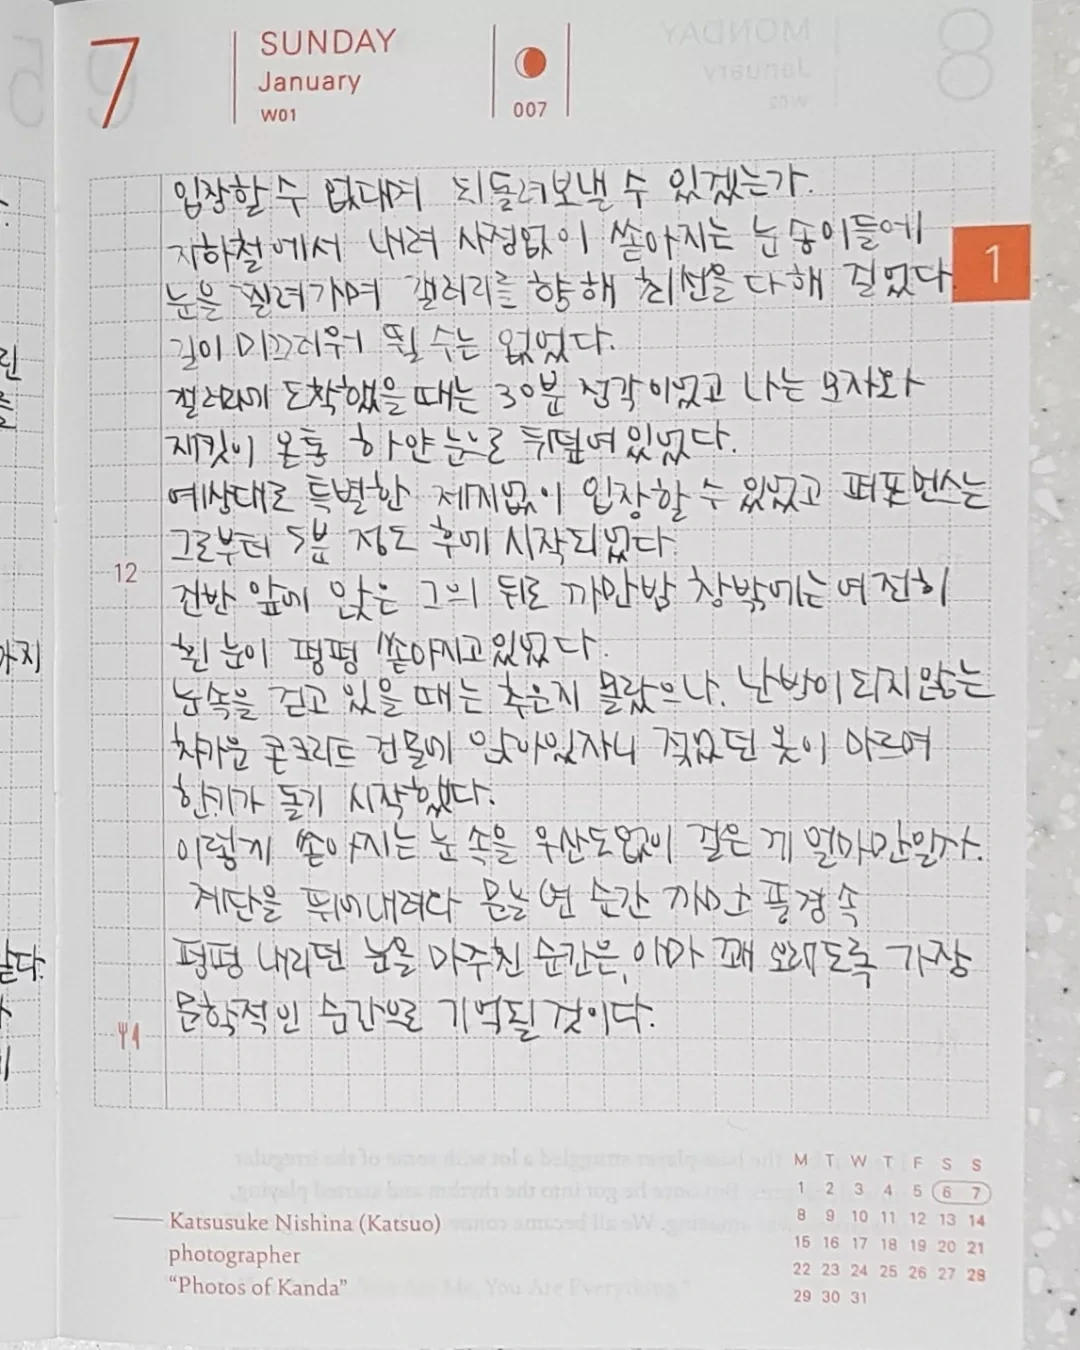 7
SUNDAY
January
W01
007
1
입장할 수 없대며 되돌려보낼 수 있겠는가.
지하철에서 내려 사정없이 쏟아지는 눈송이들에
눈을 찔려가며 갤러리를 향해 최선을 다해 걸었다
길이 미끄러워 뛸 수는 없었다.
갤러리에 도착했을 때는 30분 정각이었고 나는 모자와
재킷이 온통 하얀 눈으로 뒤덮여있었다.
예상대로 특별한 제지없이 입장할 수 있었고 퍼포먼스는
그로부터 5분 정도 후에 시작되었다.
12
건반 앞에 앉은 그의 뒤로 까만밤 창밖에는 여전히
흰 눈이 펑펑 쏟아지고있었다.
눈속을 걷고 있을 때는 추운지 몰랐으나, 난방이 되지않는
차가운 콘크리트 건물에 앉아있자니 젖었던 옷이 마르며
한기가 돌기 시작했다.
이렇게 쏟아지는 눈 속을 우산도없이 걸은 게 얼마만일까.
계단을 뛰어내려다 문득 본 순간 까만 풍경 속
펑펑 내리던 눈을 마주친 순간은, 아마 꽤 오래도록 가장
문학적인 순간으로 기억될 것이다.
Katsusuke Nishina (Katsuo)
photographer
“Photos of Kanda”
M T W T F S S
1 2 3 4 5 6 7
8 9 10 11 12 13 14
15 16 17 18 19 20 21
22 23 24 25 26 27 28
29 30 31